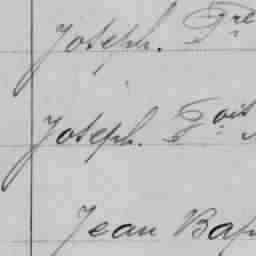 Joseph. Fre
Joseph. Fois
Jean Bap